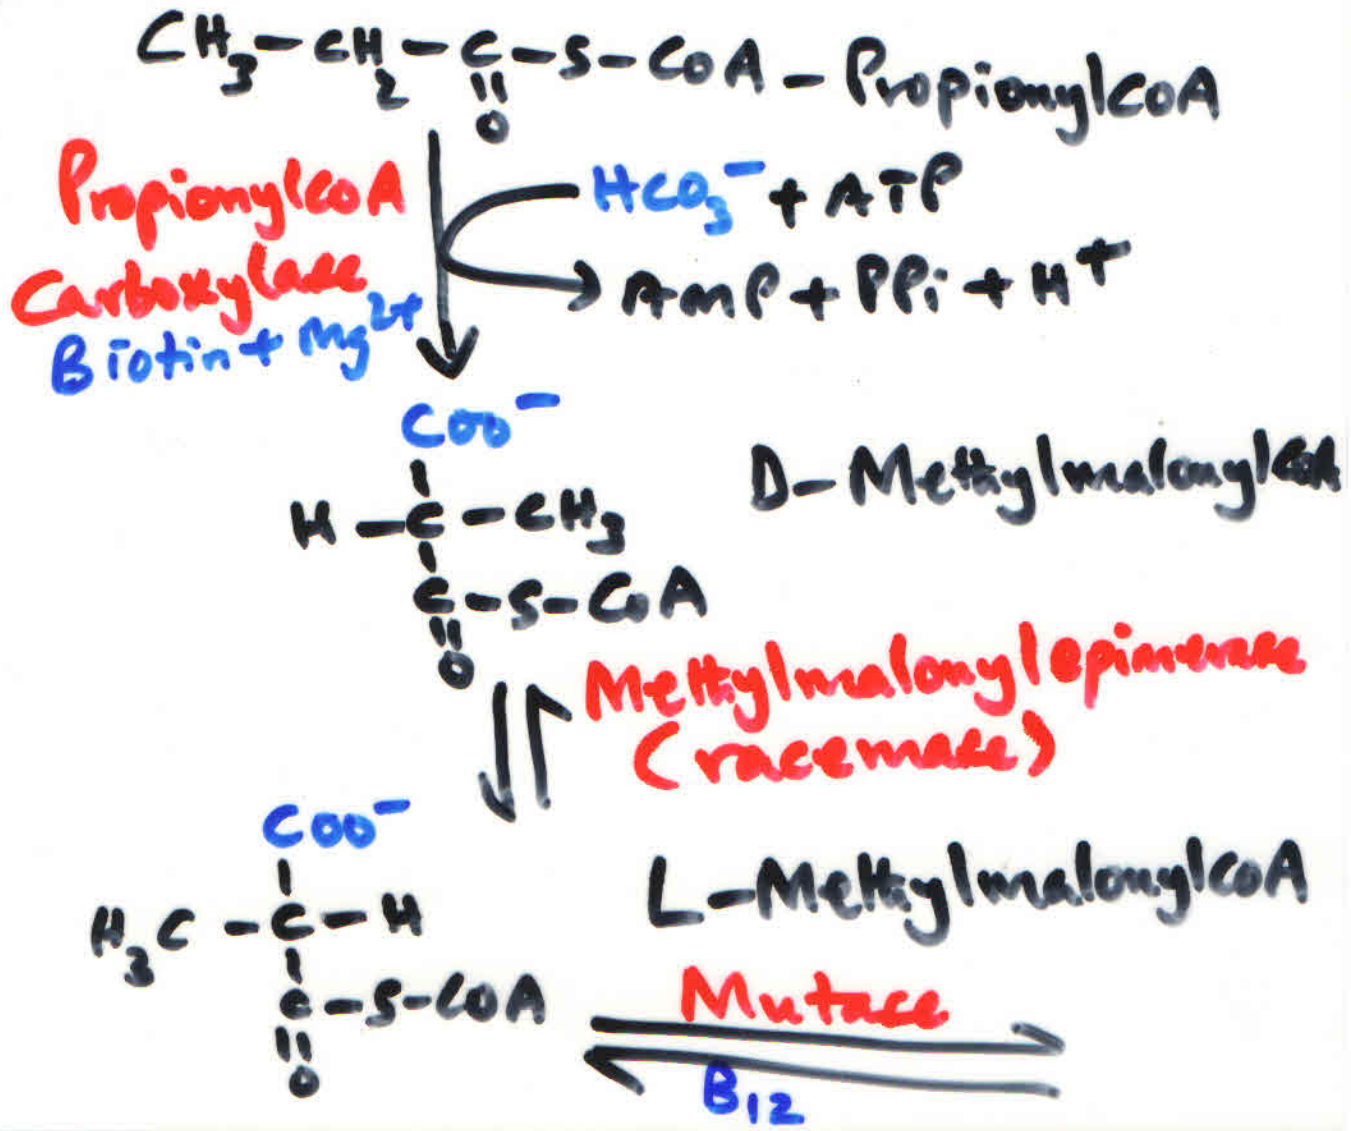 CH3-CH2-C-S-CoA - PropionylCoA
O
PropionylCoA
Carboxylase
Biotin + Mg2+
HCO3- + ATP
AMP + PPi + H+
COO-
H-C-CH3
C-S-CoA
O
D-MethylmalonylCoA
Methylmalonylepimerase
(racemase)
COO-
H3C-C-H
C-S-CoA
O
L-MethylmalonylCoA
Mutase
B12